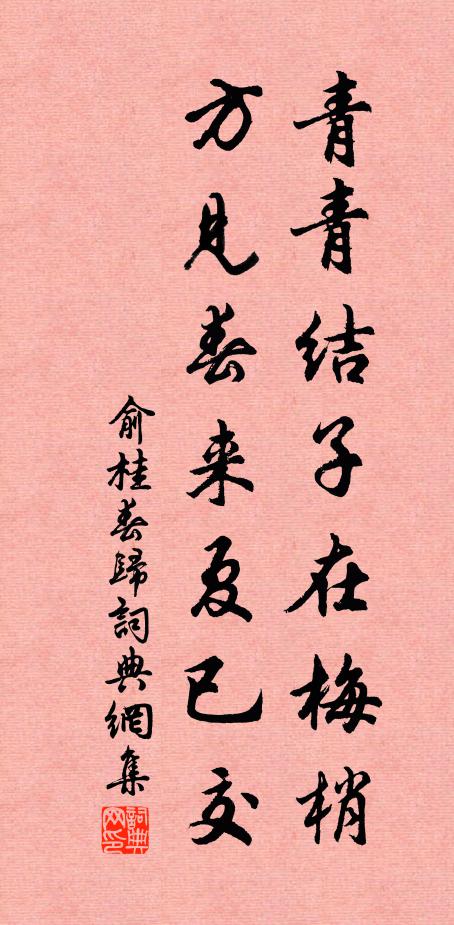 青青结子在梅梢
方见春来夏已交
俞桂春歸詞典網集
詞典网印